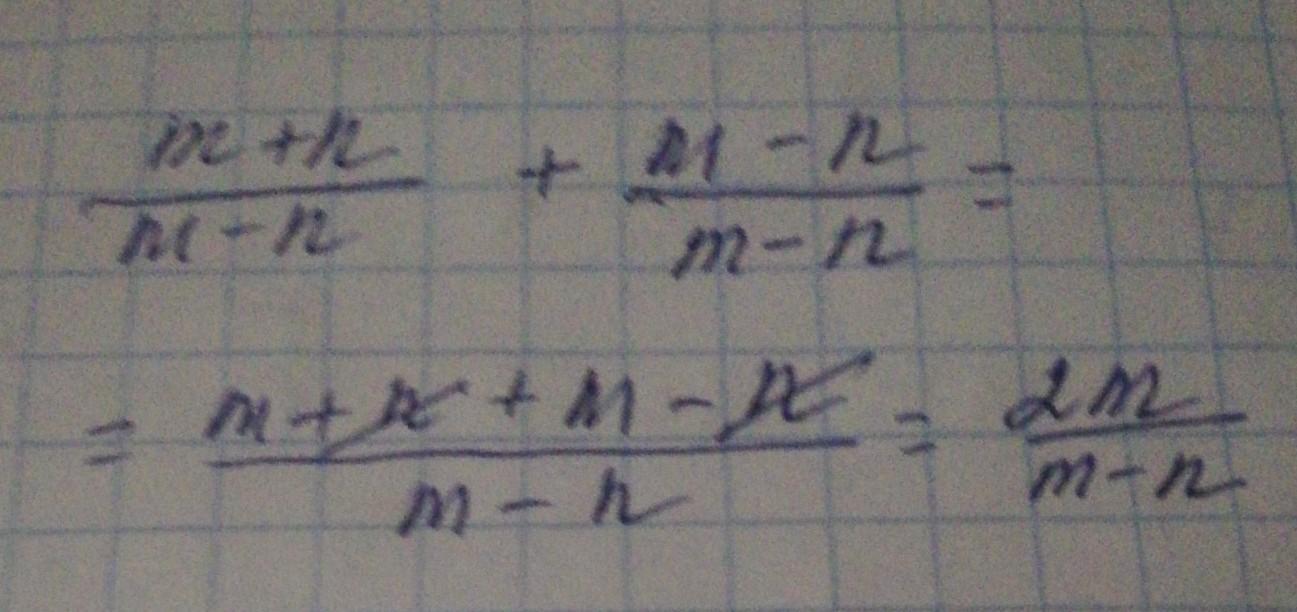 \frac{m+n}{m-n} + \frac{m-n}{m-n} =
= \frac{m+n+m-n}{m-n} = \frac{2m}{m-n}